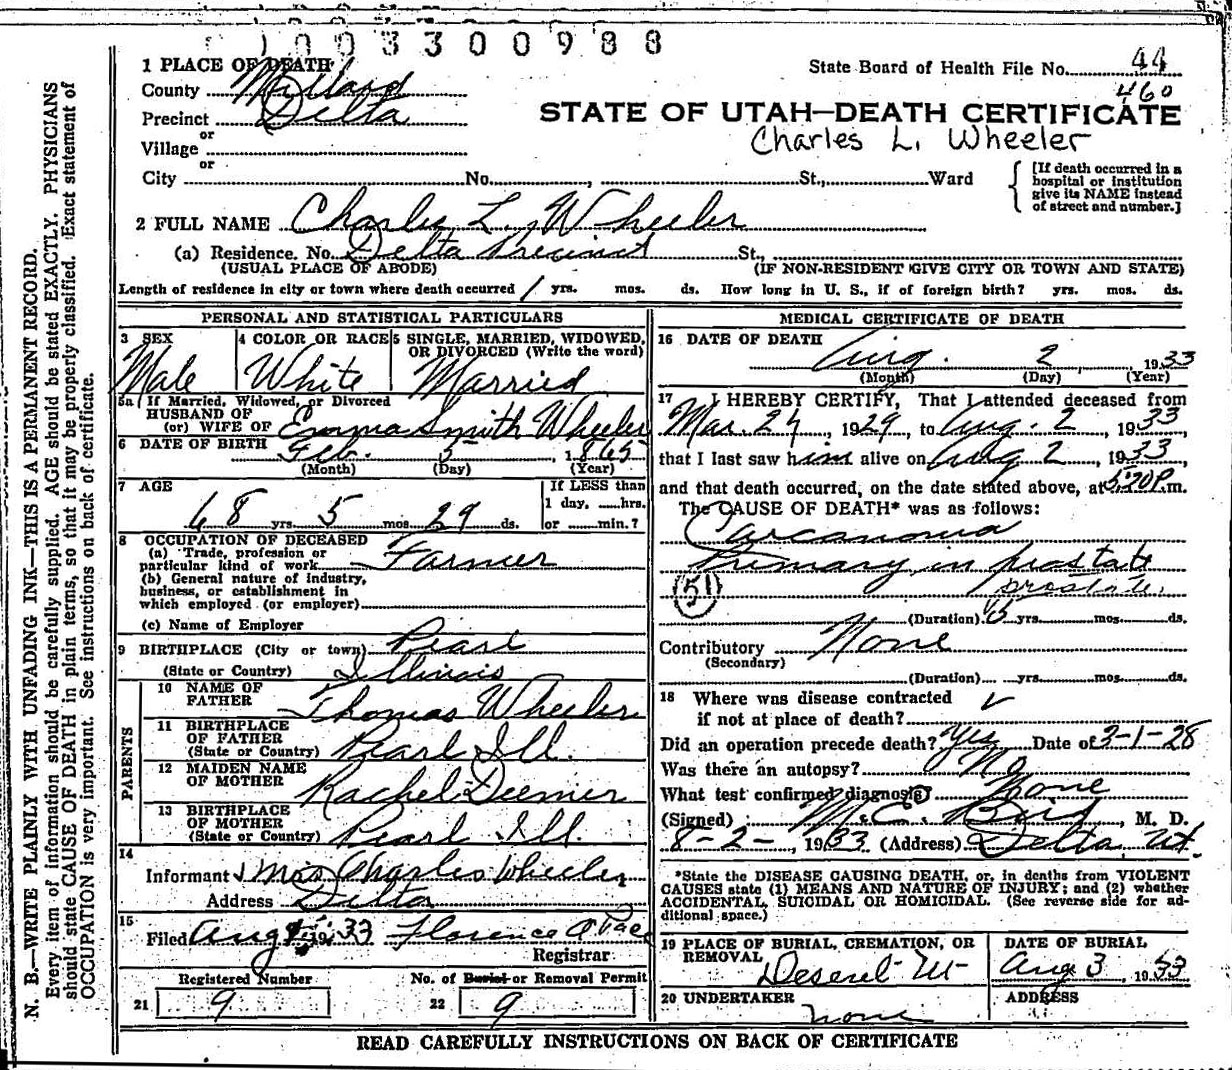 003300988
1 PLACE OF DEATH
State Board of Health File No. 44
460
County Millard
Precinct Delta
STATE OF UTAH—DEATH CERTIFICATE
Charles L. Wheeler
or
Village
or
City No. , St., Ward
[If death occurred in a
hospital or institution
give its NAME instead
of street and number.]
2 FULL NAME Charles L. Wheeler
(a) Residence. No. Delta Precinct St.,
(USUAL PLACE OF ABODE) (IF NON-RESIDENT GIVE CITY OR TOWN AND STATE)
Length of residence in city or town where death occurred 1 yrs. mos. ds. How long in U. S., if of foreign birth? yrs. mos. ds.
PERSONAL AND STATISTICAL PARTICULARS
3 SEX
Male
4 COLOR OR RACE
White
5 SINGLE, MARRIED, WIDOWED,
OR DIVORCED (Write the word)
Married
5a If Married, Widowed, or Divorced
HUSBAND OF
(or) WIFE OF Emma Smith Wheeler
6 DATE OF BIRTH Feb. 5, 1865
(Month) (Day) (Year)
7 AGE
68 yrs. 5 mos. 29 ds.
If LESS than
1 day, hrs.
or min.?
8 OCCUPATION OF DECEASED
(a) Trade, profession or
particular kind of work Farmer
(b) General nature of industry,
business, or establishment in
which employed (or employer)
(c) Name of Employer
9 BIRTHPLACE (City or town) Pearl
(State or Country) Illinois
PARENTS
10 NAME OF
FATHER Thomas Wheeler
11 BIRTHPLACE
OF FATHER
(State or Country) Pearl Ill.
12 MAIDEN NAME
OF MOTHER Rachel Deemer
13 BIRTHPLACE
OF MOTHER
(State or Country) Pearl Ill.
14
Informant Mrs Charles Wheeler
Address Delta
15
Filed Aug 1933 Florence A.
Registrar
Registered Number
21 9
No. of Burial or Removal Permit
22 9
MEDICAL CERTIFICATE OF DEATH
16 DATE OF DEATH
Aug. 2 1933
(Month) (Day) (Year)
17 I HEREBY CERTIFY, That I attended deceased from
Mar. 24, 1929, to Aug. 2, 1933,
that I last saw him alive on Aug 2, 1933,
and that death occurred, on the date stated above, at P.m.
The CAUSE OF DEATH* was as follows:
Carcanoma
Primary in prostate
51 prostate.
(Duration) yrs. mos. ds.
Contributory None
(Secondary)
(Duration) yrs. mos. ds.
18 Where was disease contracted
if not at place of death?
Did an operation precede death? Yes Date of 3-1-28
Was there an autopsy? No
What test confirmed diagnosis None
(Signed) M. C. , M. D.
8-2-, 1933 (Address) Delta, Ut.
*State the DISEASE CAUSING DEATH, or, in deaths from VIOLENT
CAUSES state (1) MEANS AND NATURE OF INJURY; and (2) whether
ACCIDENTAL, SUICIDAL OR HOMICIDAL. (See reverse side for ad-
ditional space.)
19 PLACE OF BURIAL, CREMATION, OR
REMOVAL Deseret Ut
DATE OF BURIAL
Aug 3, 1933
20 UNDERTAKER
none
ADDRESS
READ CAREFULLY INSTRUCTIONS ON BACK OF CERTIFICATE
N. B.—WRITE PLAINLY WITH UNFADING INK—THIS IS A PERMANENT RECORD.
Every item of information should be carefully supplied. AGE should be stated EXACTLY. PHYSICIANS
should state CAUSE OF DEATH in plain terms, so that it may be properly classified. Exact statement of
OCCUPATION is very important. See instructions on back of certificate.